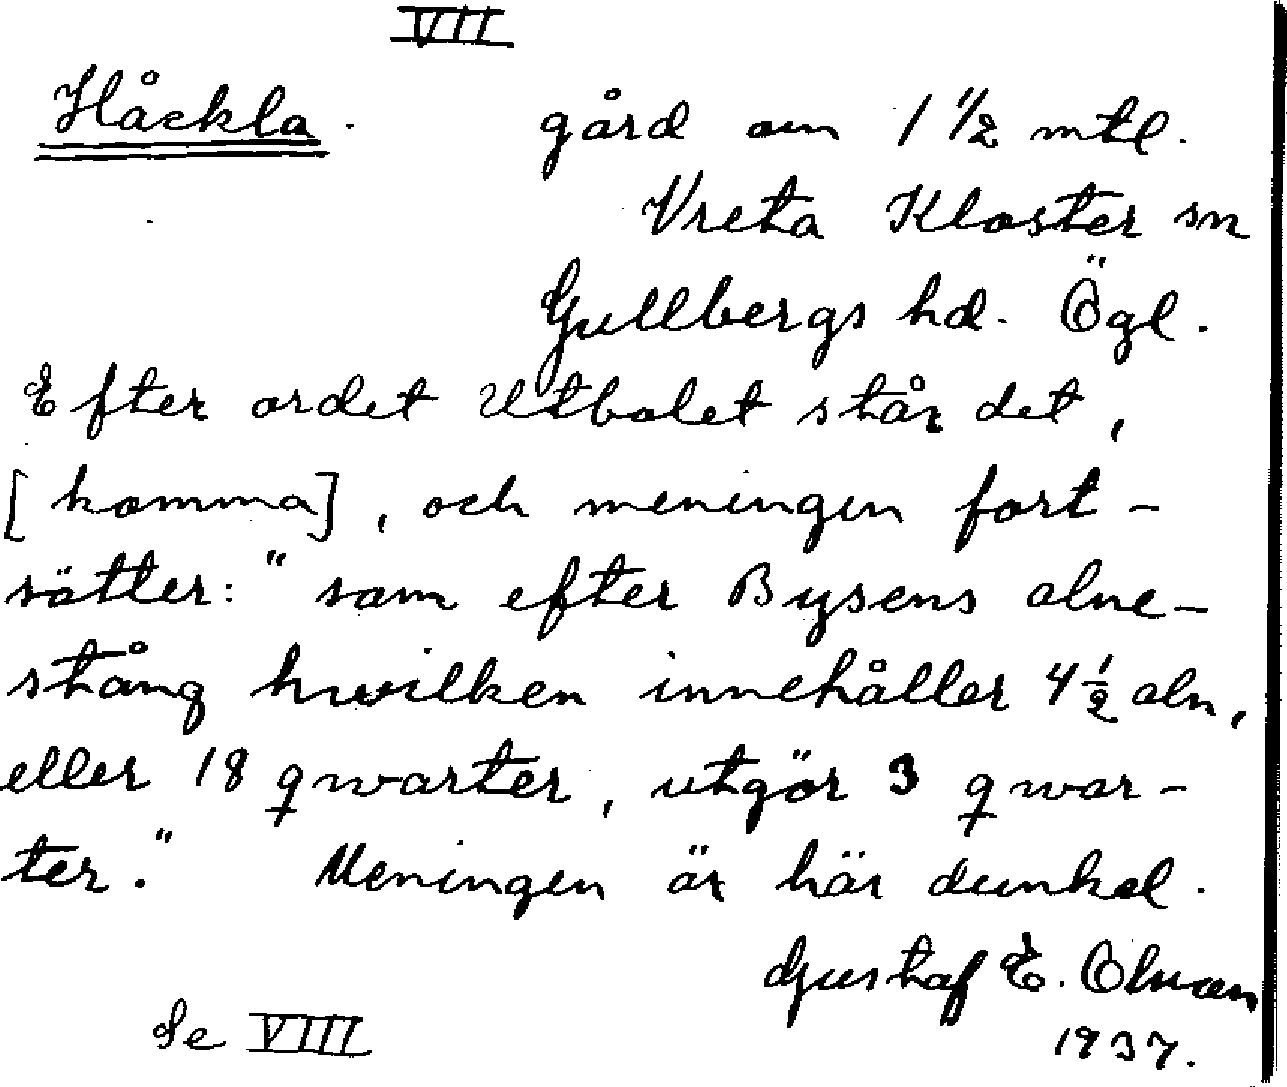 VII
Håckla. gård om 1 1/2 mtl.
Vreta Kloster sn
Gullbergs hd. Ögl.
Efter ordet Utbolet står det,
[komma], och meningen fort-
sätter: "som efter Bysens alne-
stång hwilken innehåller 4 1/2 aln,
eller 18 qwarter, utgör 3 qwar-
ter." Meningen är här dunkel.
Gustaf E.
1937.
Se VIII